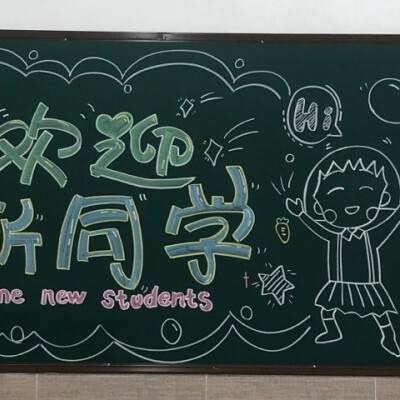 欢迎
新同学
me new students
Hi